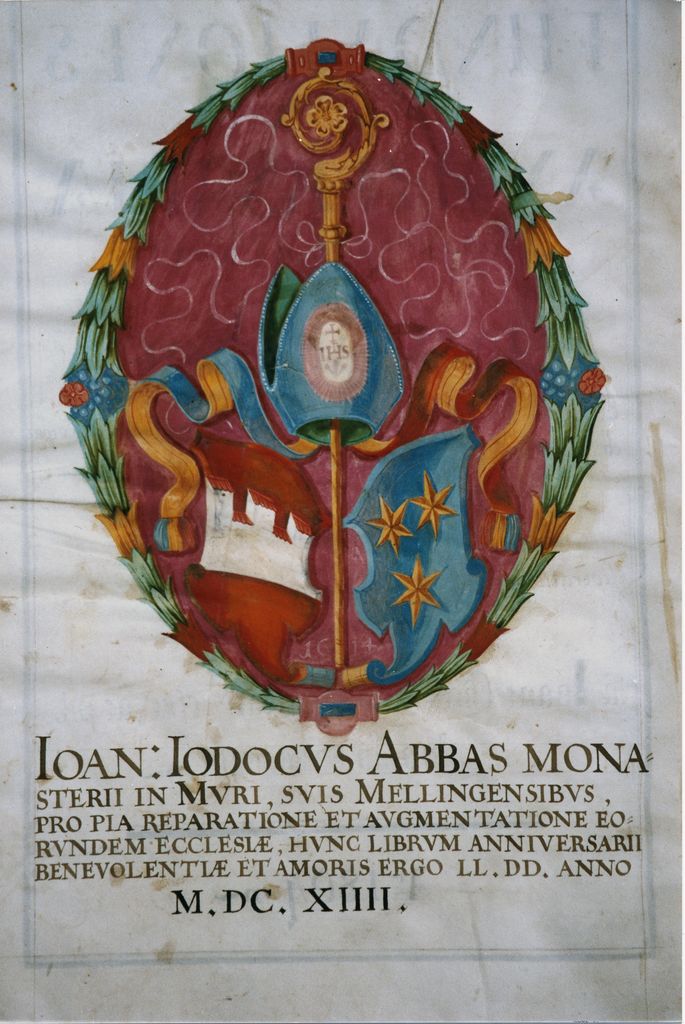 IHS
1614
IOAN: IODOCVS ABBAS MONA=
STERII IN MVRI, SVIS MELLINGENSIBVS,
PRO PIA REPARATIONE ET AVGMENTATIONE EO=
RVNDEM ECCLESIÆ, HVNC LIBRVM ANNIVERSARII
BENEVOLENTIÆ ET AMORIS ERGO LL. DD. ANNO
M.DC. XIIII.